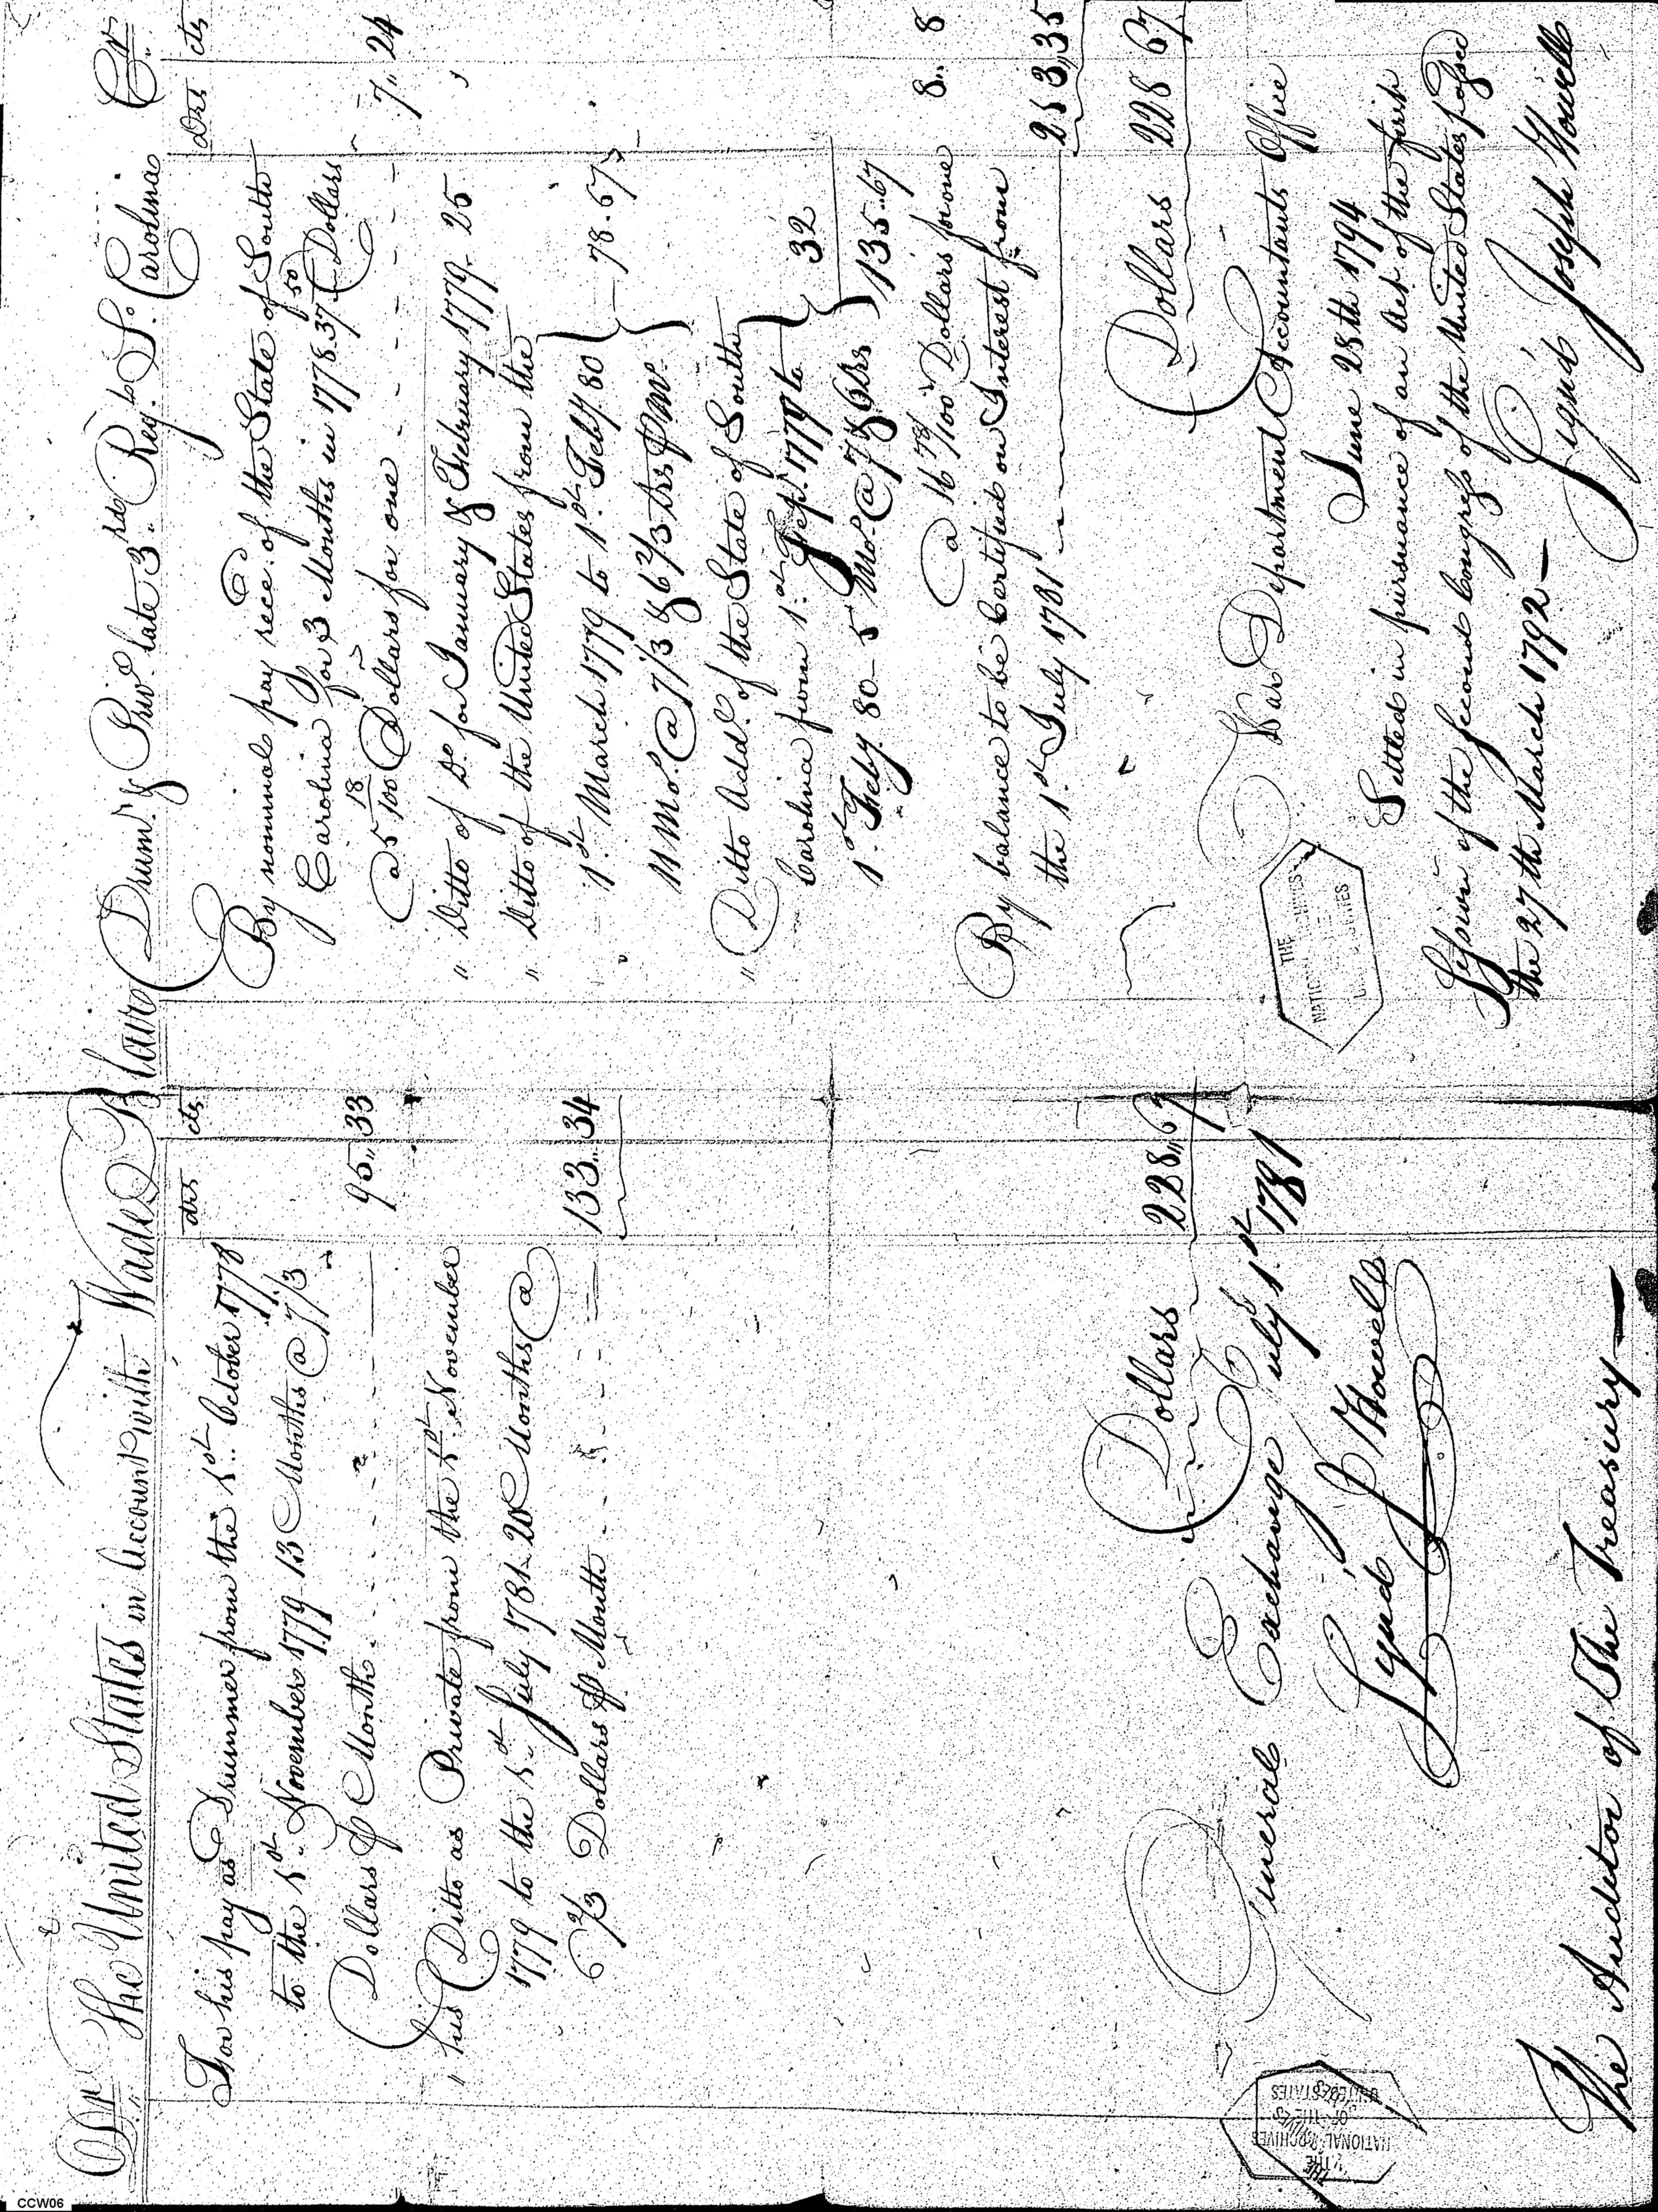 Dr. The United States in Account with Wade Blair Drumr. & Priv. late 3rd. Regt. So. Carolina Cr.
drs cts
For his pay as Drummer from the 1st. October 1778
to the 1st. November 1779 13 Months @ 7 1/3
Dollars P Month 95,, 33
" his Ditto as Private from the 1st. November
1779 to the 1st July 1781. 20 Months @
6 2/3 Dollars P Month 133,, 34
Dollars 228,, 67
General Exchange July 1st 1781
Signed J Howell
The Auditor of The Treasury
Drs cts
By nominal pay rece. of the State of South
Carolina for 3 Months in 1778. 37 50 Dollars
a 5 18/100 Dollars for one 7,, 24
" Ditto of Do. for January & February 1779. 25
" Ditto of the United States from the
1st. March 1779 to 1st. Feby. 80
11 Mo. @ 7 1/3 & 6 2/3 Drs P Mo. 78. 67
" Ditto Addl. of the State of South
Carolina from 1st. Sepr. 1779 to
1st. Feby. 80 - 5 Mo. @ Drs 32
135..67
@ 16 78/100 Dollars for one 8,, 8
By balance to be Certified on Interest from
the 1st. July 1781 213,,35
Dollars 228 67
War Department Accountants Office
June 28th 1794
Settled in pursuance of an Act of the first
Session of the second Congress of the United States passed
the 27th March 1792
Signd Joseph Howell
THE
NATIONAL ARCHIVES
OF THE
UNITED STATES
THE
NATIONAL ARCHIVES
OF THE
UNITED STATES
CCW06